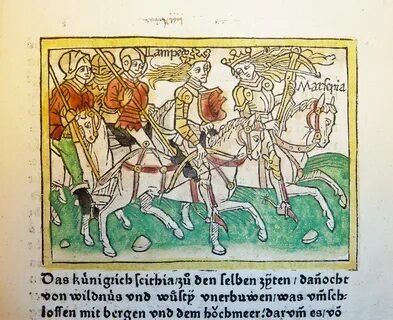 Lampedo
Marsepia
Das künigrich scithia/zů den selben zÿten/dañocht
von wildnüs vnd wůstÿ vnerbuwen/was vmsch-
lossen mit bergen vnd dem hochmeer/darvm es/vō